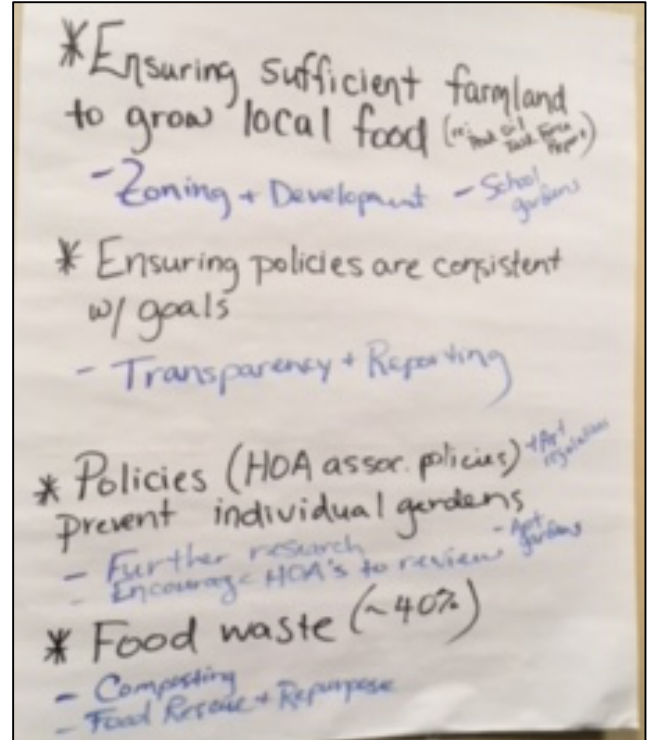 * Ensuring sufficient farmland
to grow local food (re: Peak Oil Task Force Report)
- Zoning + Development - School gardens
* Ensuring policies are consistent
w/ goals
- Transparency + Reporting
* Policies (HOA assoc. policies) + Apt regulations
prevent individual gardens
- Further research
- Encourage HOA's to review - Apt gardens
* Food waste (~40%)
- Composting
- Food Rescue + Repurpose